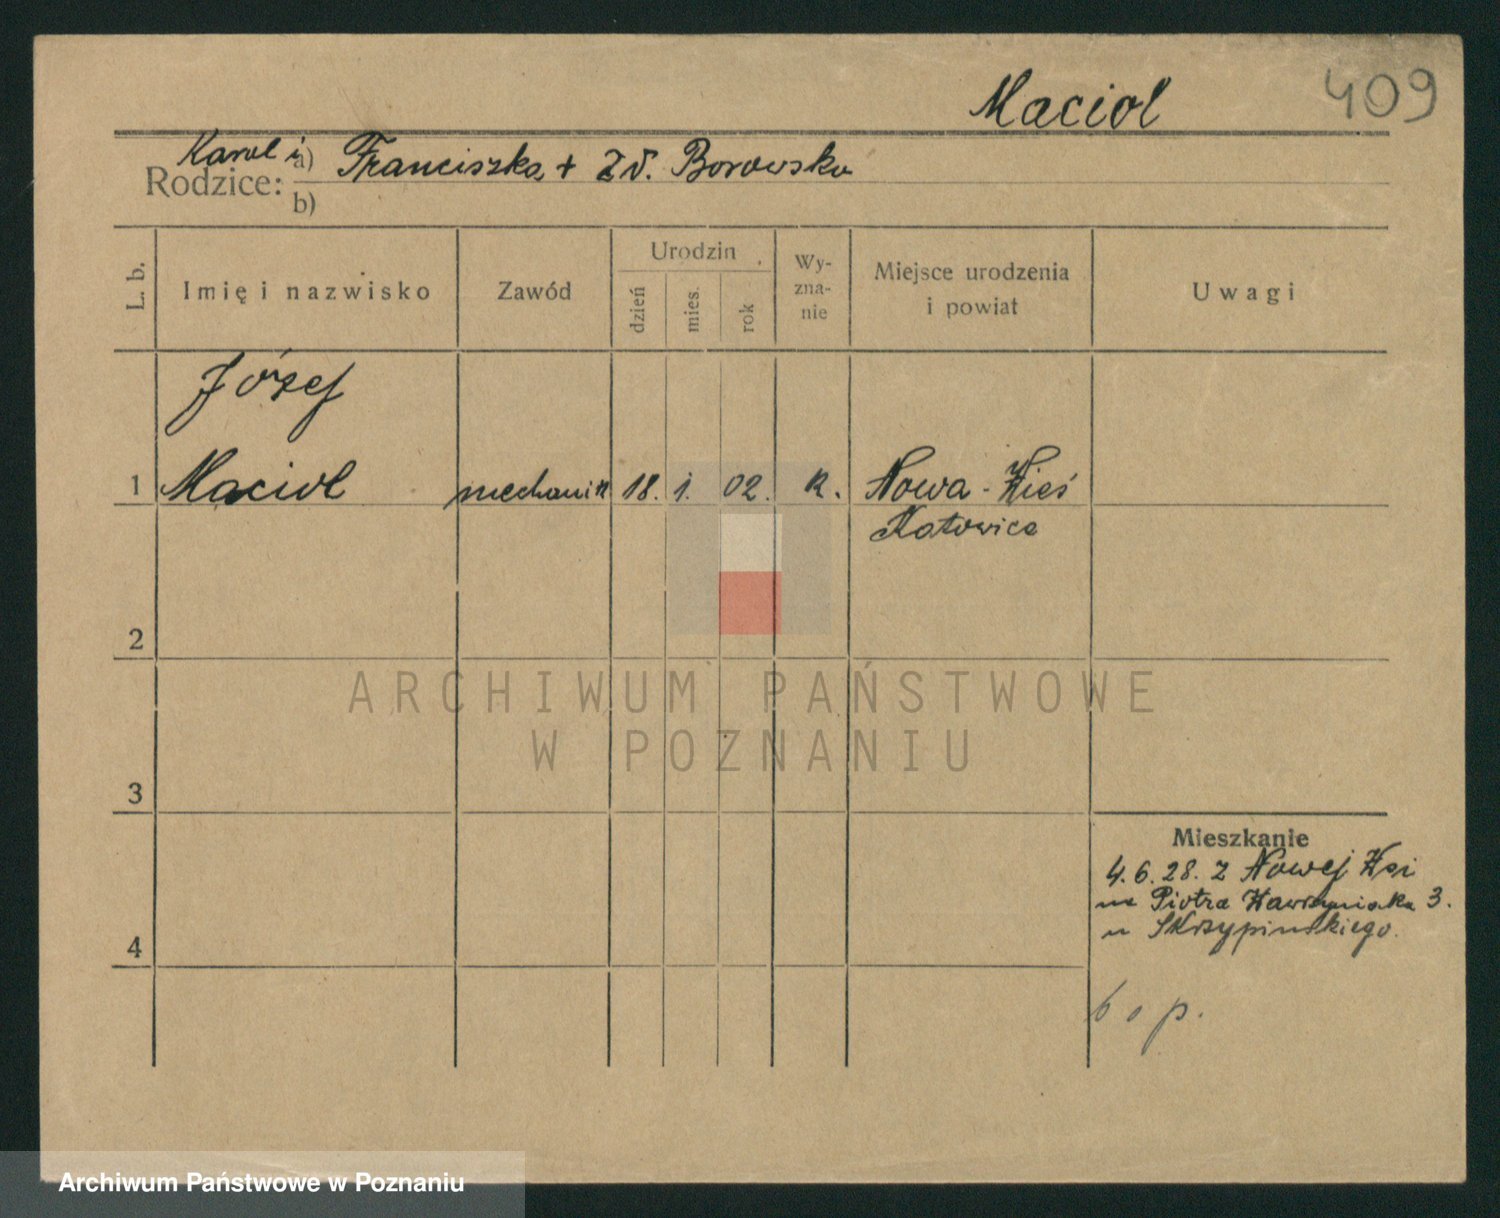 Maciol 409
Karol i a) Franciszka + Zd. Borowska
Rodzice:
b)
L. b. Imię i nazwisko Zawód Urodzin dzień mies. rok Wy-
zna-
nie Miejsce urodzenia
i powiat Uwagi
Józef
1 Maciol mechanik 18. 1. 02. R. Nowa - Wieś
Katowice
2
ARCHIWUM PAŃSTWOWE
W POZNANIU
3
Mieszkanie
4. 6. 28. z Nowej Wsi
na Piotra Wawrzyniaka 3.
u Skrzypińskiego.
4
Archiwum Państwowe w Poznaniu